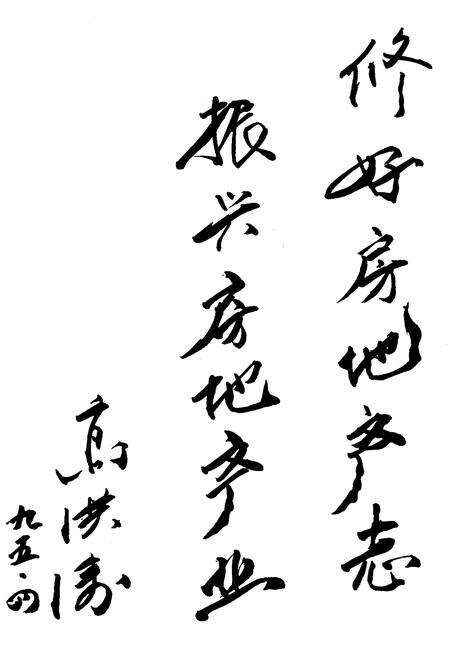 修好房地产志
振兴房地产业
高洪涛
九五·四